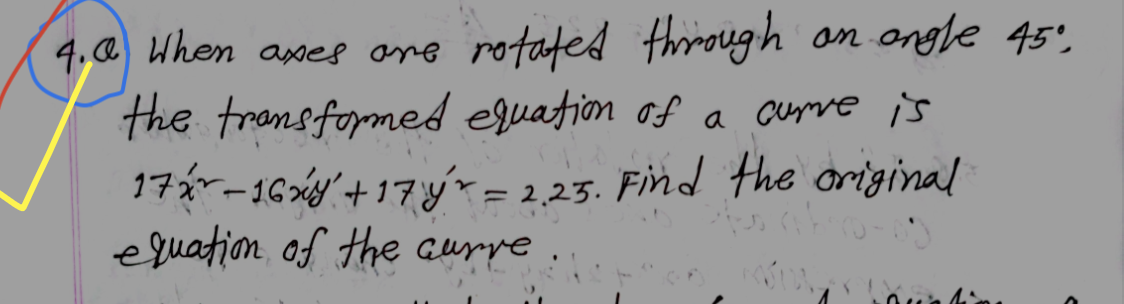 4.a When axes are rotated through an angle 45°,
the transformed equation of a curve is
17x'² - 16x'y' + 17y'² = 225. Find the original
equation of the curve.